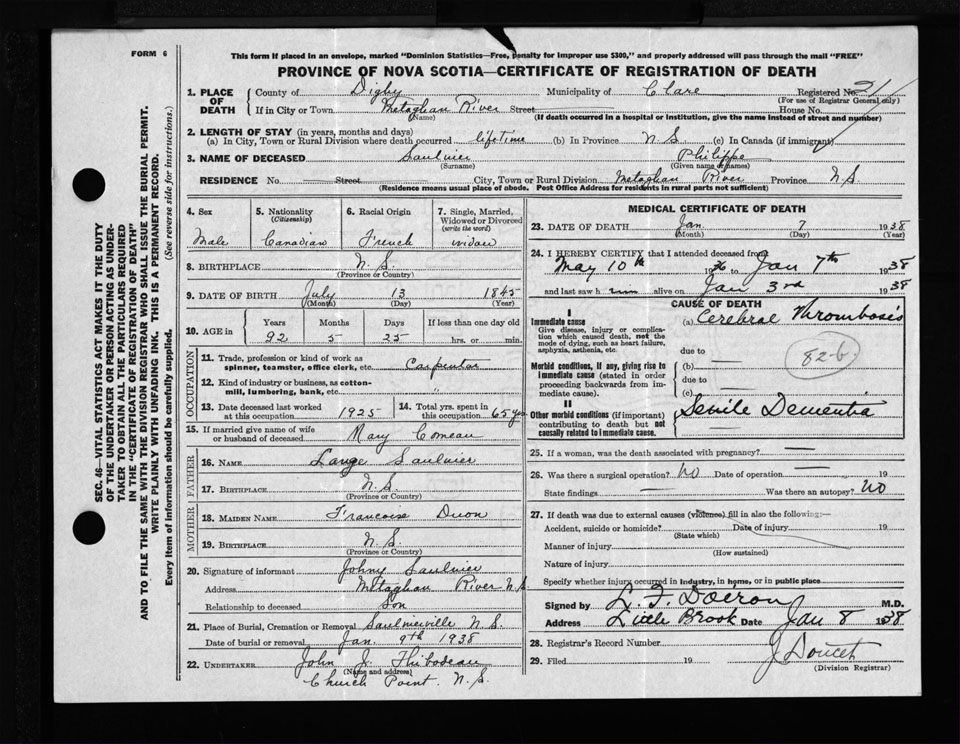 FORM 6
This form if placed in an envelope, marked "Dominion Statistics—Free, penalty for improper use $300," and properly addressed will pass through the mail "FREE"
PROVINCE OF NOVA SCOTIA—CERTIFICATE OF REGISTRATION OF DEATH
SEC. 46—VITAL STATISTICS ACT MAKES IT THE DUTY
OF THE UNDERTAKER OR PERSON ACTING AS UNDER-
TAKER TO OBTAIN ALL THE PARTICULARS REQUIRED
IN THE "CERTIFICATE OF REGISTRATION OF DEATH"
AND TO FILE THE SAME WITH THE DIVISION REGISTRAR WHO SHALL ISSUE THE BURIAL PERMIT.
WRITE PLAINLY WITH UNFADING INK. THIS IS A PERMANENT RECORD.
Every item of information should be carefully supplied. (See reverse side for instructions.)
1. PLACE OF DEATH
County of Digby Municipality of Clare Registered No. 21
(For use of Registrar General only)
If in City or Town Metaghan River Street House No.
(Name) (If death occurred in a hospital or institution, give the name instead of street and number)
2. LENGTH OF STAY (in years, months and days)
(a) In City, Town or Rural Division where death occurred lifetime (b) In Province N S (c) In Canada (if immigrant)
3. NAME OF DECEASED Saulnier Philippe
(Surname) (Given name or names)
RESIDENCE No. Street City, Town or Rural Division Metaghan River Province N.S.
(Residence means usual place of abode. Post Office Address for residents in rural parts not sufficient)
4. Sex
Male
5. Nationality
(Citizenship)
Canadian
6. Racial Origin
French
7. Single, Married, Widowed or Divorced
(write the word)
widow
8. BIRTHPLACE N.S.
(Province or Country)
9. DATE OF BIRTH July 13 1845
(Month) (Day) (Year)
10. AGE in Years Months Days If less than one day old
92 5 25 hrs. or min.
OCCUPATION
11. Trade, profession or kind of work as
spinner, teamster, office clerk, etc. Carpentar
12. Kind of industry or business, as cotton-
mill, lumbering, bank, etc. "
13. Date deceased last worked
at this occupation 1925
14. Total yrs. spent in
this occupation 65 yrs
15. If married give name of wife
or husband of deceased Mary Comeau
FATHER
16. NAME Lange Saulnier
17. BIRTHPLACE N.S.
(Province or Country)
MOTHER
18. MAIDEN NAME Francoise Duon
19. BIRTHPLACE N.S.
(Province or Country)
20. Signature of informant Johny Saulnier
Address Metaghan River N.S.
Relationship to deceased Son
21. Place of Burial, Cremation or Removal Saulnierville N.S.
Date of burial or removal Jan. 9th 1938
22. UNDERTAKER John J. Thibodeau
(Name and address)
Church Point. N.S.
MEDICAL CERTIFICATE OF DEATH
23. DATE OF DEATH Jan 7 1938
(Month) (Day) (Year)
24. I HEREBY CERTIFY that I attended deceased from
May 10th 1936 to Jan 7th 1938
and last saw him alive on Jan 3rd 1938
CAUSE OF DEATH
I
Immediate cause
Give disease, injury or complica-
tion which caused death, not the
mode of dying, such as heart failure,
asphyxia, asthenia, etc.
(a) Cerebral Thrombosis
due to
82-b
Morbid conditions, if any, giving rise to
immediate cause (stated in order
proceeding backwards from im-
mediate cause).
(b)
due to
(c)
II
Other morbid conditions (if important)
contributing to death but not
causally related to immediate cause.
Senile Dementia
25. If a woman, was the death associated with pregnancy?
26. Was there a surgical operation? No Date of operation 19
State findings Was there an autopsy? No
27. If death was due to external causes (violence) fill in also the following:—
Accident, suicide or homicide? Date of injury 19
(State which)
Manner of injury
(How sustained)
Nature of injury
Specify whether injury occurred in industry, in home, or in public place
Signed by L. F. Doiron M.D.
Address Little Brook Date Jan 8 1938
28. Registrar's Record Number
29. Filed 19 J Doucet
(Division Registrar)